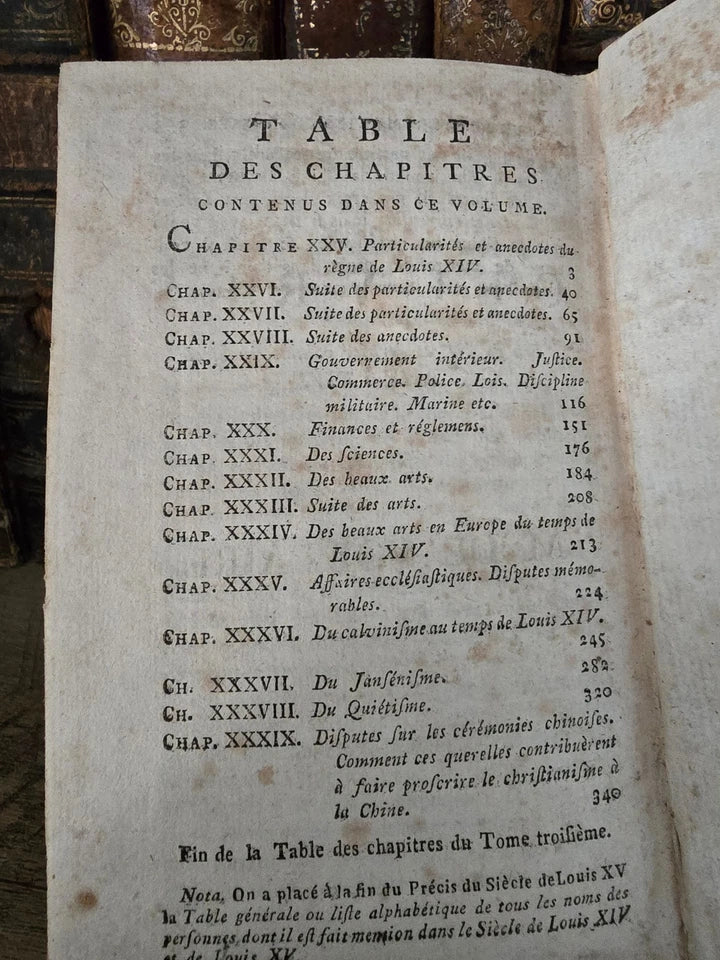 TABLE
DES CHAPITRES
CONTENUS DANS CE VOLUME.
CHAPITRE XXV. Particularités et anecdotes du
règne de Louis XIV. 3
CHAP. XXVI. Suite des particularités et anecdotes. 40
CHAP. XXVII. Suite des particularités et anecdotes. 65
CHAP. XXVIII. Suite des anecdotes. 91
CHAP. XXIX. Gouvernement intérieur. Juſtice.
Commerce. Police. Lois. Diſcipline
militaire. Marine etc. 116
CHAP. XXX. Finances et réglemens. 151
CHAP. XXXI. Des ſciences. 176
CHAP. XXXII. Des beaux arts. 184
CHAP. XXXIII. Suite des arts. 208
CHAP. XXXIV. Des beaux arts en Europe du temps de
Louis XIV. 213
CHAP. XXXV. Affaires eccléſiaſtiques. Diſputes mémo-
rables. 224
CHAP. XXXVI. Du calviniſme au temps de Louis XIV.
245
CH. XXXVII. Du Janſéniſme. 282
CH. XXXVIII. Du Quiétiſme. 320
CHAP. XXXIX. Diſputes ſur les cérémonies chinoiſes.
Comment ces querelles contribuèrent
à faire proſcrire le chriſtianiſme à
la Chine. 340
Fin de la Table des chapitres du Tome troiſième.
Nota. On a placé à la fin du Précis du Siècle de Louis XV
la Table générale ou liſte alphabétique de tous les noms des
perſonnes dont il eſt fait mention dans le Siècle de Louis XIV
et de Louis XV